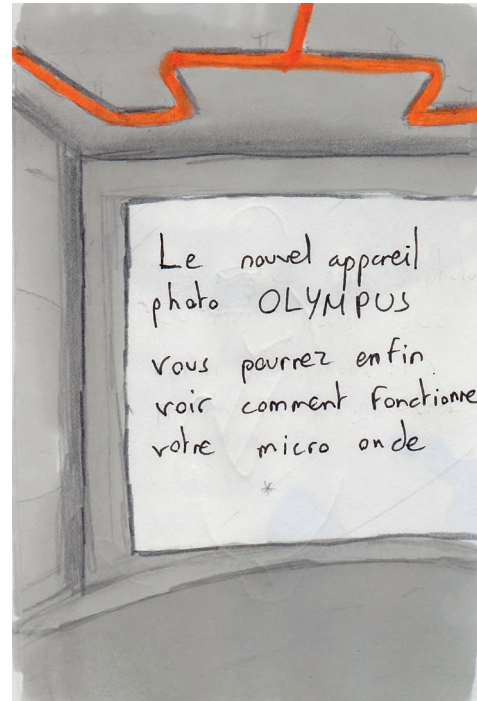 Le nouvel appareil
photo OLYMPUS
vous pourrez enfin
voir comment fonctionne
votre micro onde
*